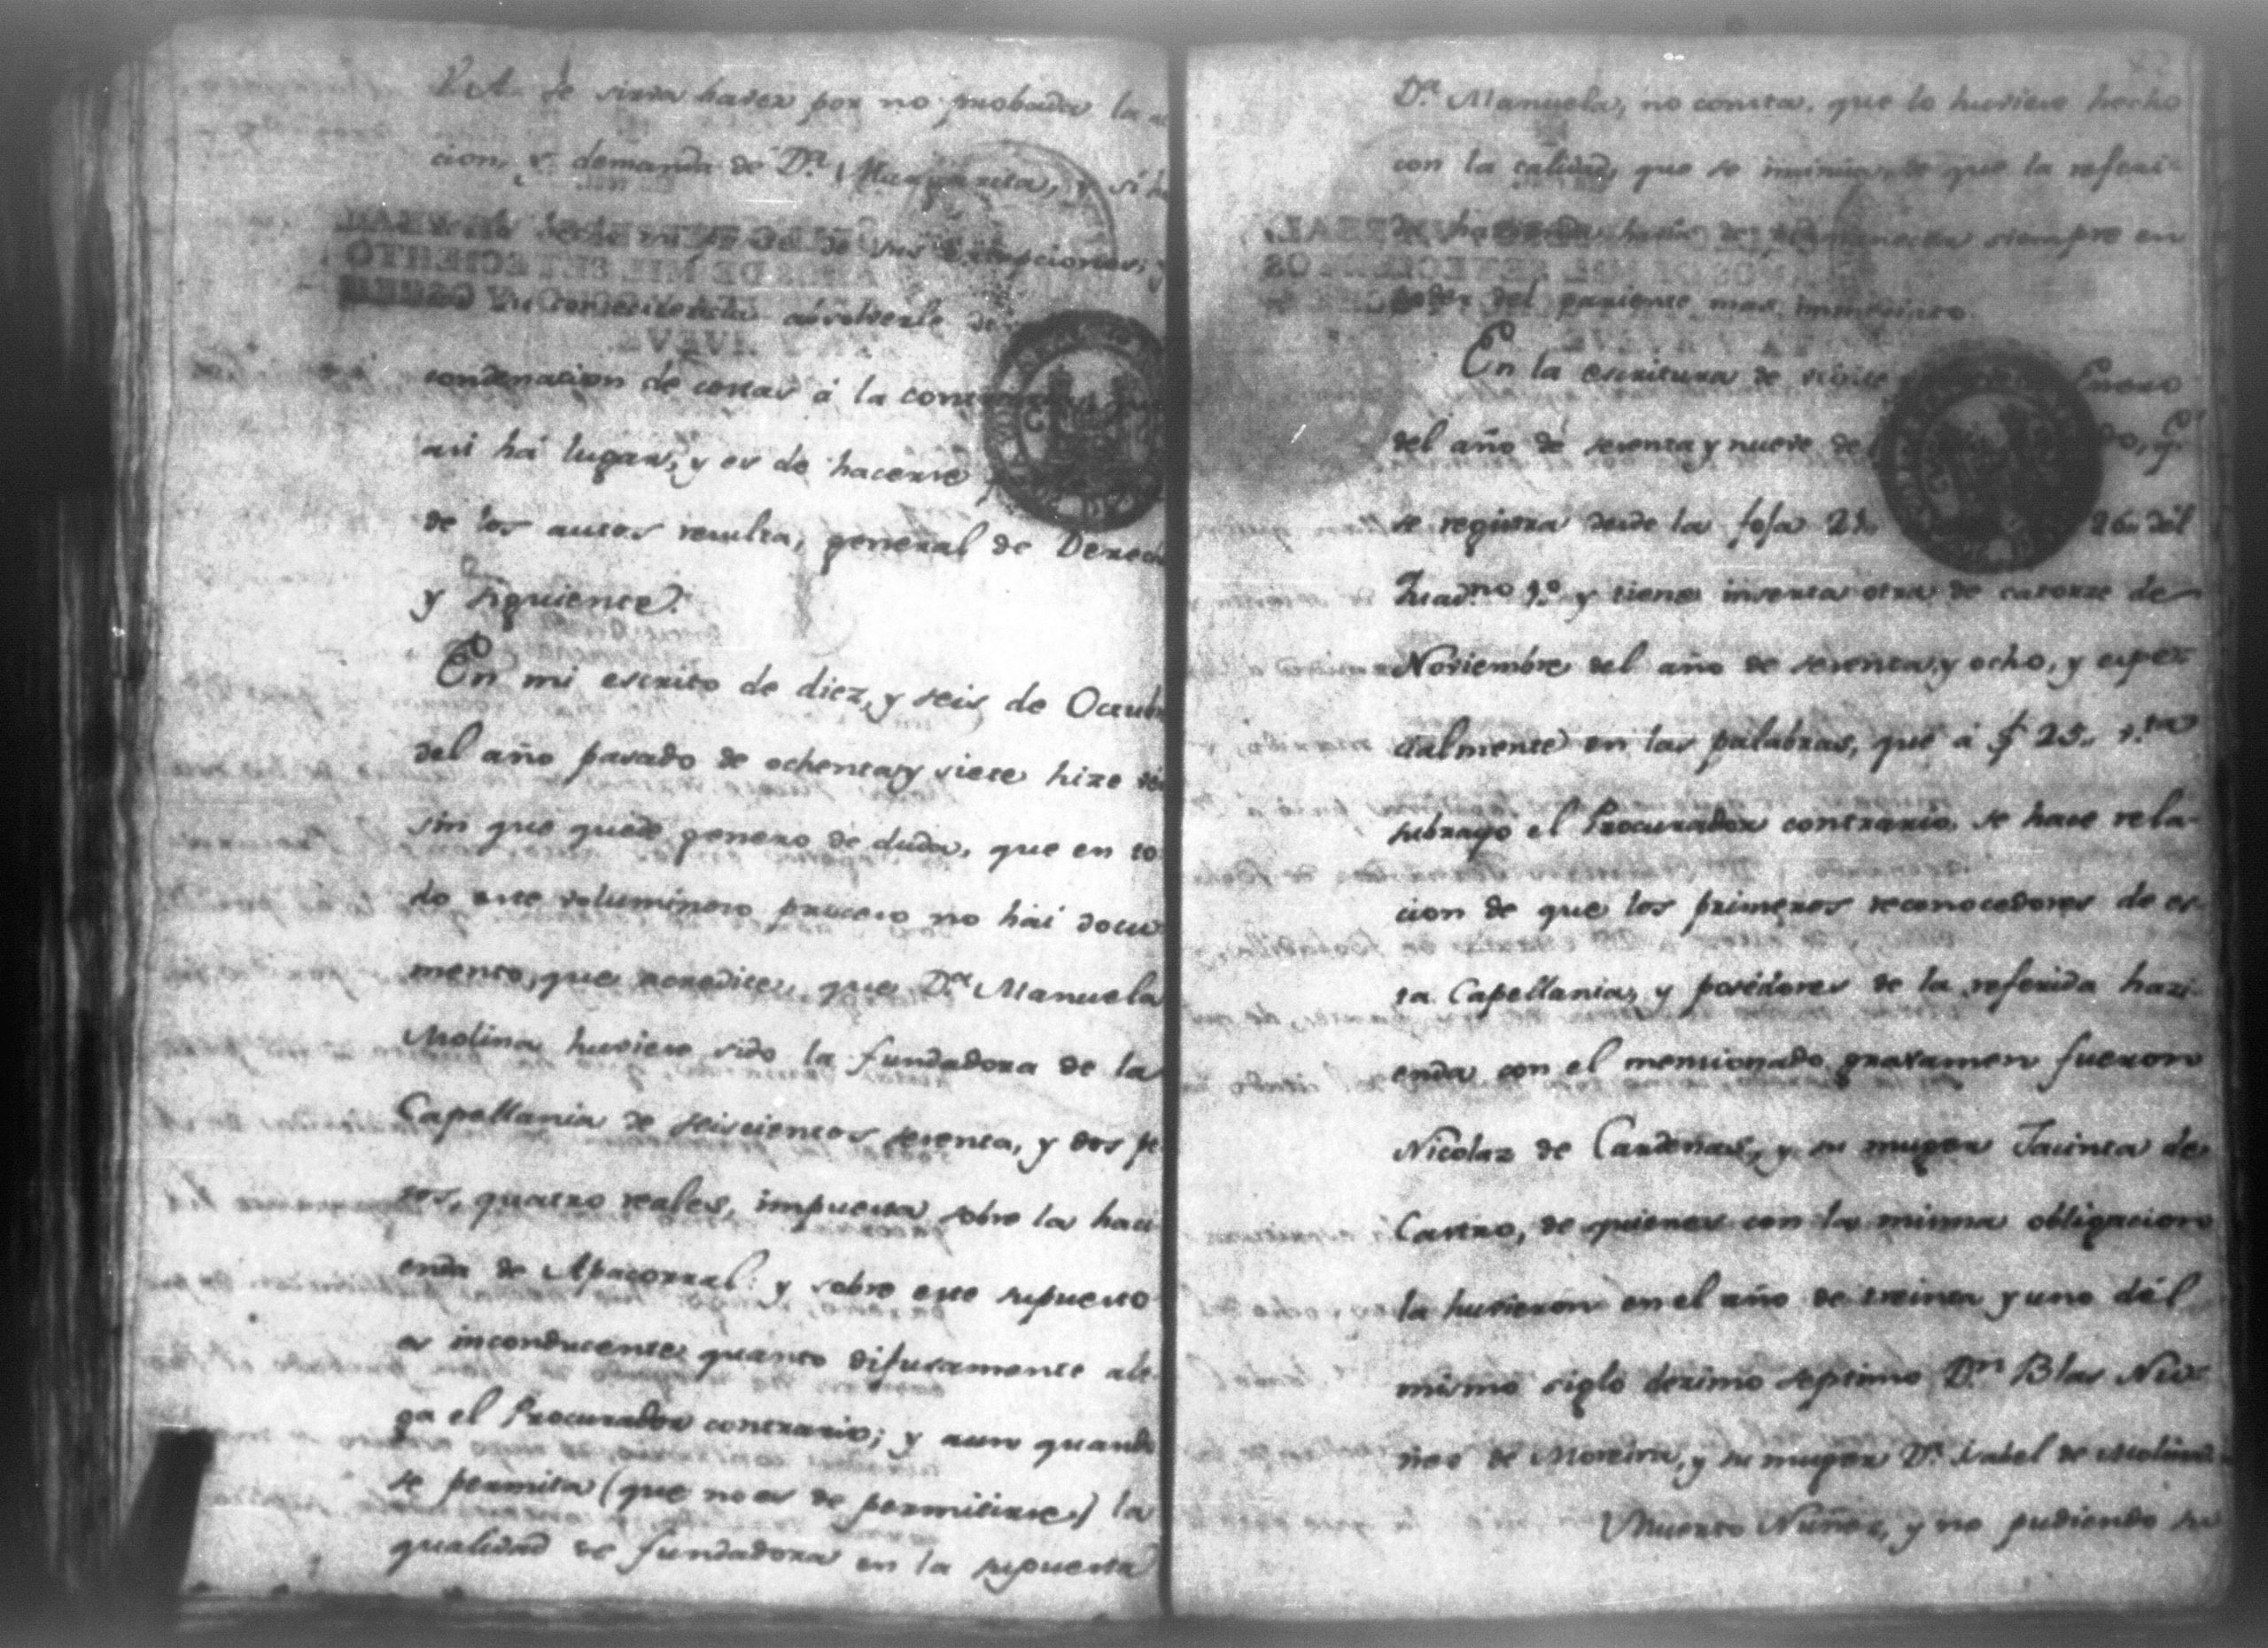 V.A. se sirva haver por no probada la a
cion, y demanda de D.ª Margarita, y si ha
de sus excepciones; y
en su consecuencia absolverle de
condenacion de costas á la contraria, que
asi há lugar, y es de hacerse
de los autos resulta, general de Derecho
y siguiente.
En mi escrito de diez, y seis de Octubre
del año pasado de ochenta y siete hize ver
sin que quede genero de duda, que en to
do este voluminoso proceso no hái docu
mento, que acredite, que D.ª Manuela
Molina huviese sido la fundadora de la
Capellania de seiscientos setenta, y dos pe
sos, quatro reales, impuesta sobre la haci
enda de Apacorral: y sobre este supuesto
es inconducente quanto difusamente ale
ga el Procurador contrario; y aun quando
se permita (que no es de permitirse) la
qualidad de fundadora en la supuesta
D.ª Manuela, no consta, que lo huviese hecho
con la calidad, que se insinúa, de que la referi-
da hacienda havia de permanecer siempre en
poder del pariente mas immediato.
En la escritura de veinte Enero
del año de setenta y nueve de q.e
se registra desde la foja 21. 26. del
Quad.no 1.º y tiene inserta otra de catorze de
Noviembre del año de setenta y ocho, y espe-
cialmente en las palabras, que á f 25. v.ta
subrayo el Procurador contrario, se hace rela-
cion de que los primeros reconocedores de es-
ta Capellania, y posedores de la referida hazi-
enda con el mencionado gravamen fueron
Nicolas de Cardenas, y su muger Jacinta de
Castro, de quienes con la misma obligacion
la huvieron en el año de treinta y uno del
mismo siglo dezimo septimo D.n Blas Nu-
ñes de Moreira, y su muger D.ª Isabel de Molina
Muerto Nuñez, y no pudiendo su